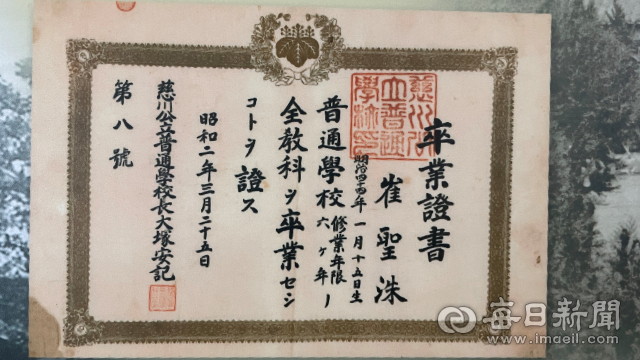 卒業證書
崔聖洙
明治四十四年一月十五日生
普通學校修業年限六ヶ年ノ
全敎科ヲ卒業セシ
コトヲ證ス
昭和二年三月二十五日
慈川公立普通學校長大塚安記
第八號
每日新聞
www.imaeil.com